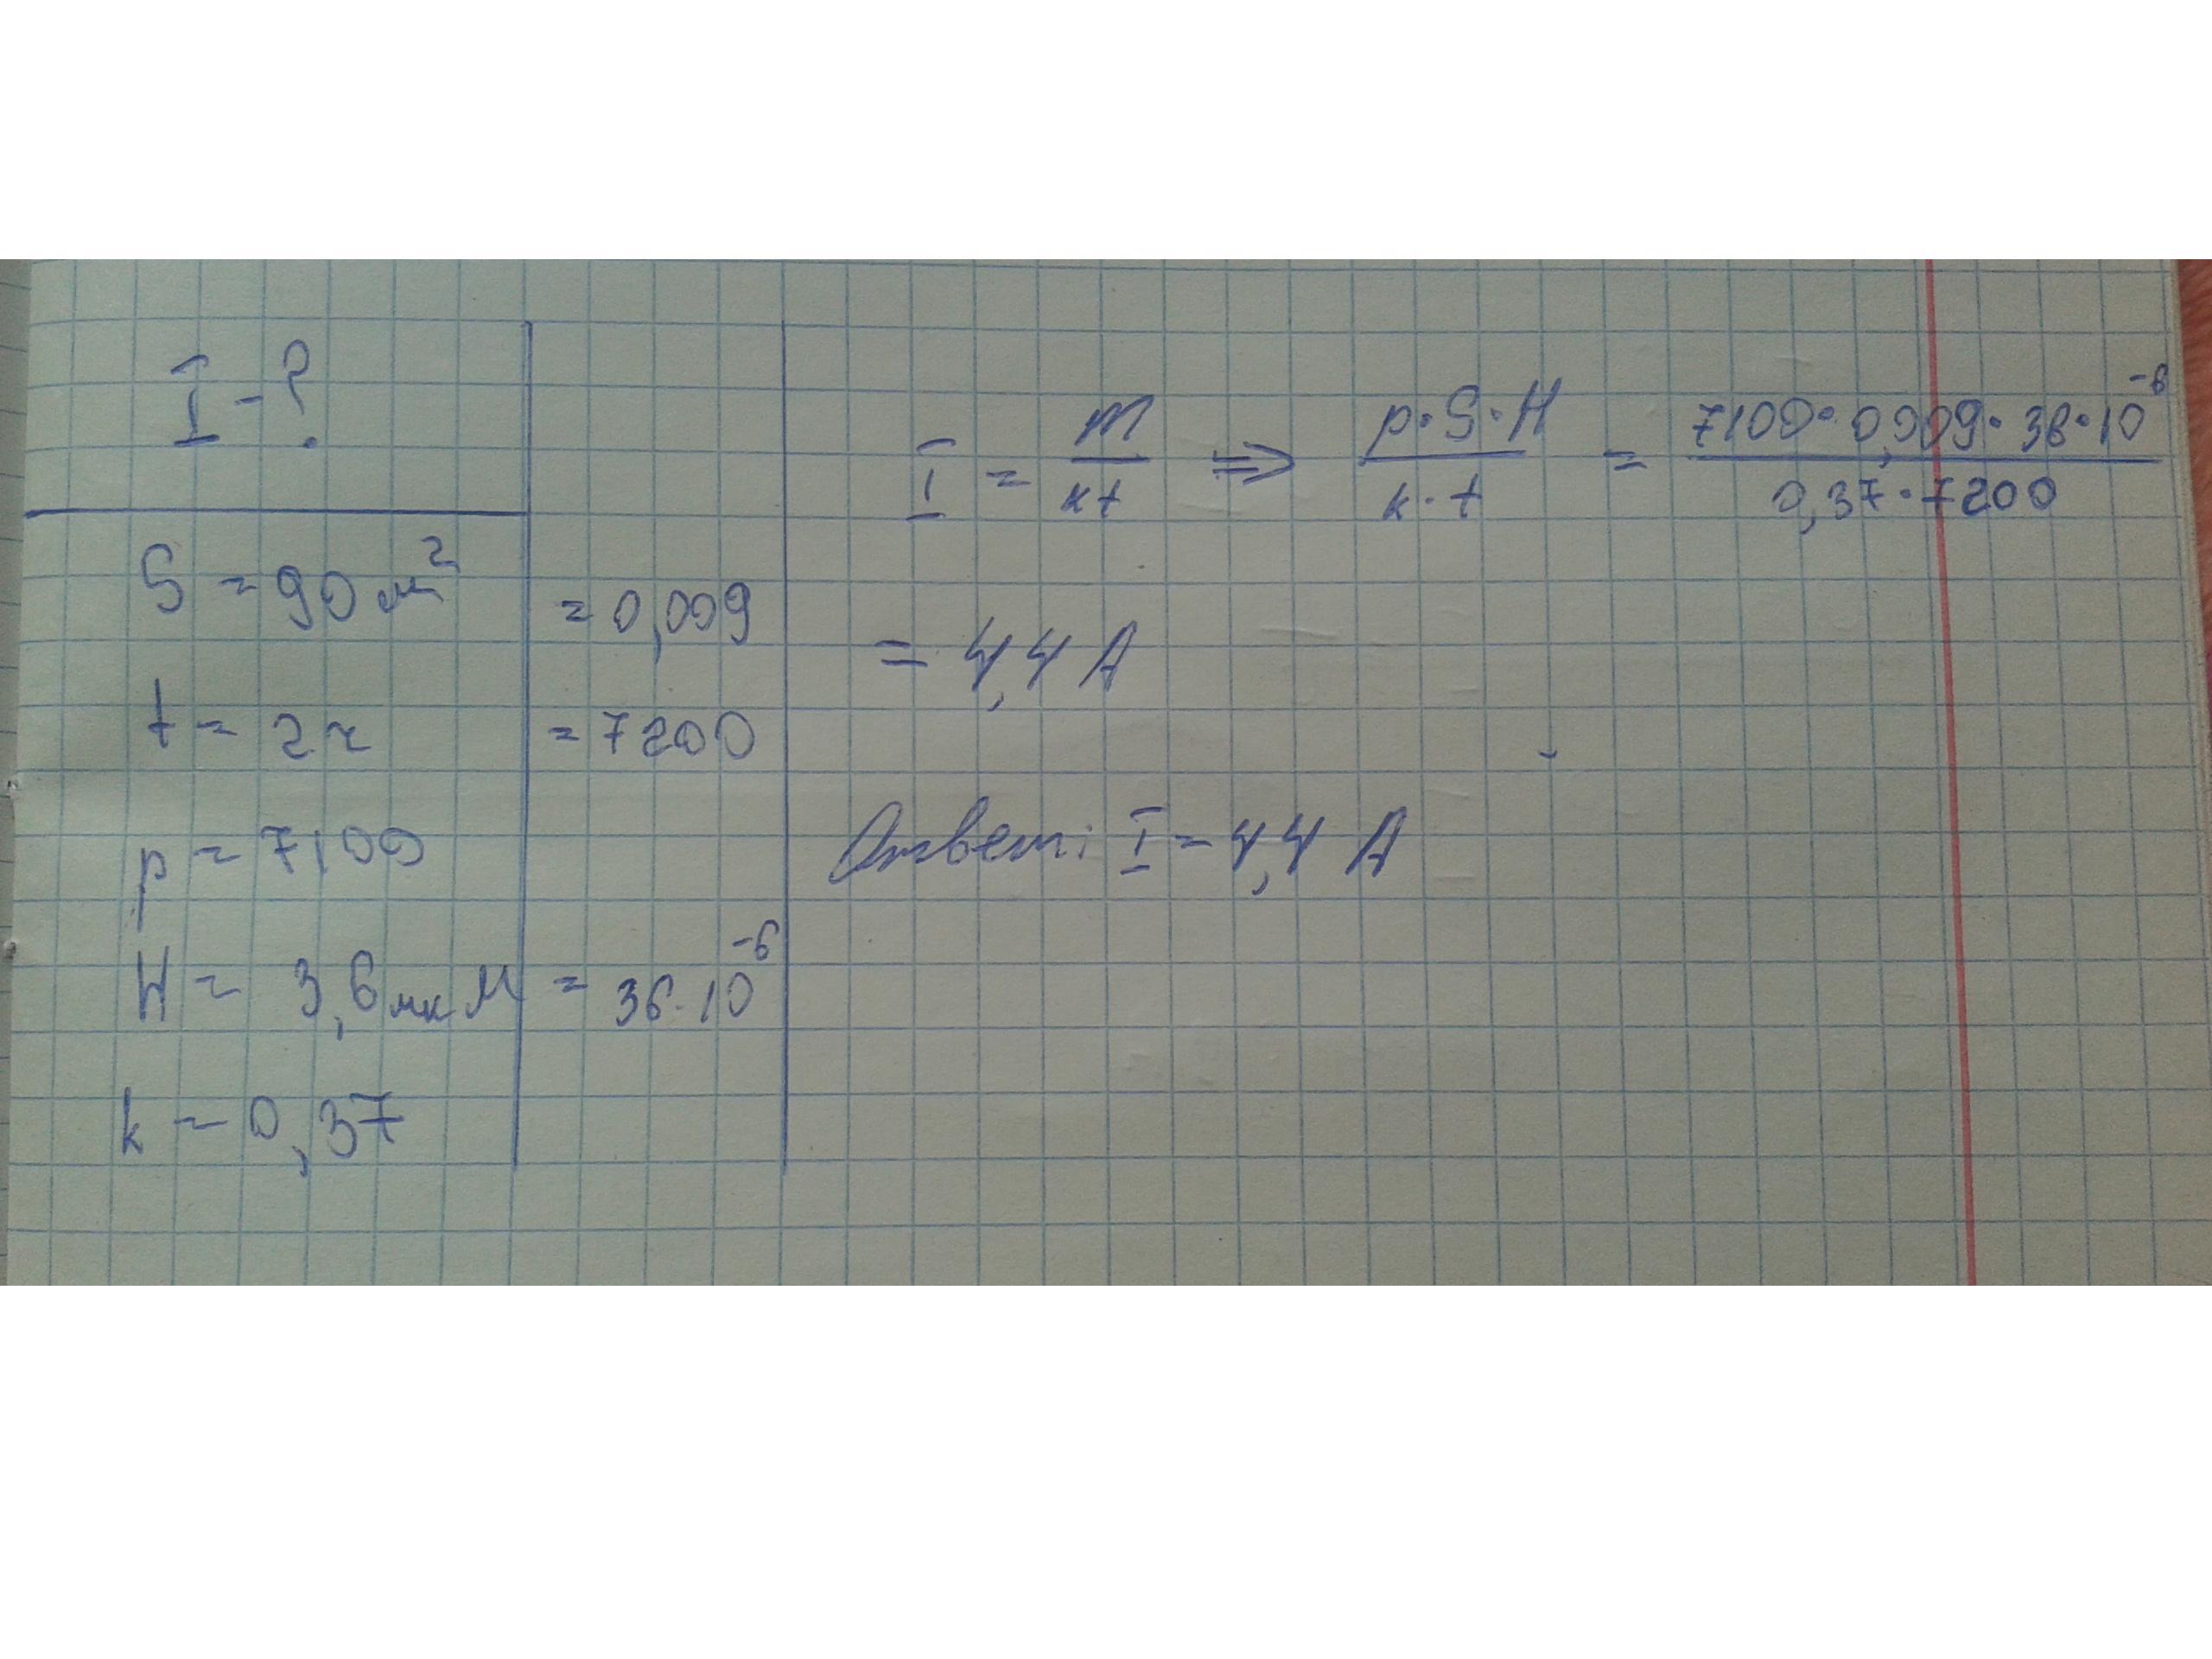 I - ?
S = 90 м² = 0,009
t = 2ч = 7200
p = 7100
H = 3,6 мкМ = 36·10⁻⁶
k = 0,37
I = m/kt ⇒ p·S·H/k·t = 7100·0,009·36·10⁻⁶/0,37·7200
= 4,4 А
Ответ: I = 4,4 А